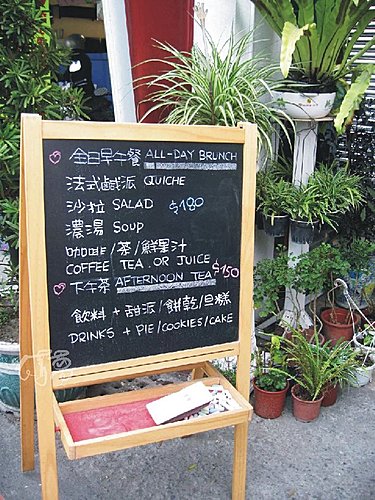 全日早午餐 ALL-DAY BRUNCH
法式鹹派 QUICHE
沙拉 SALAD $180
濃湯 SOUP
咖啡/茶/鮮果汁
COFFEE TEA OR JUICE
下午茶 AFTERNOON TEA $150
飲料 + 甜派/餅乾/旦糕
DRINKS + PIE/COOKIES/CAKE